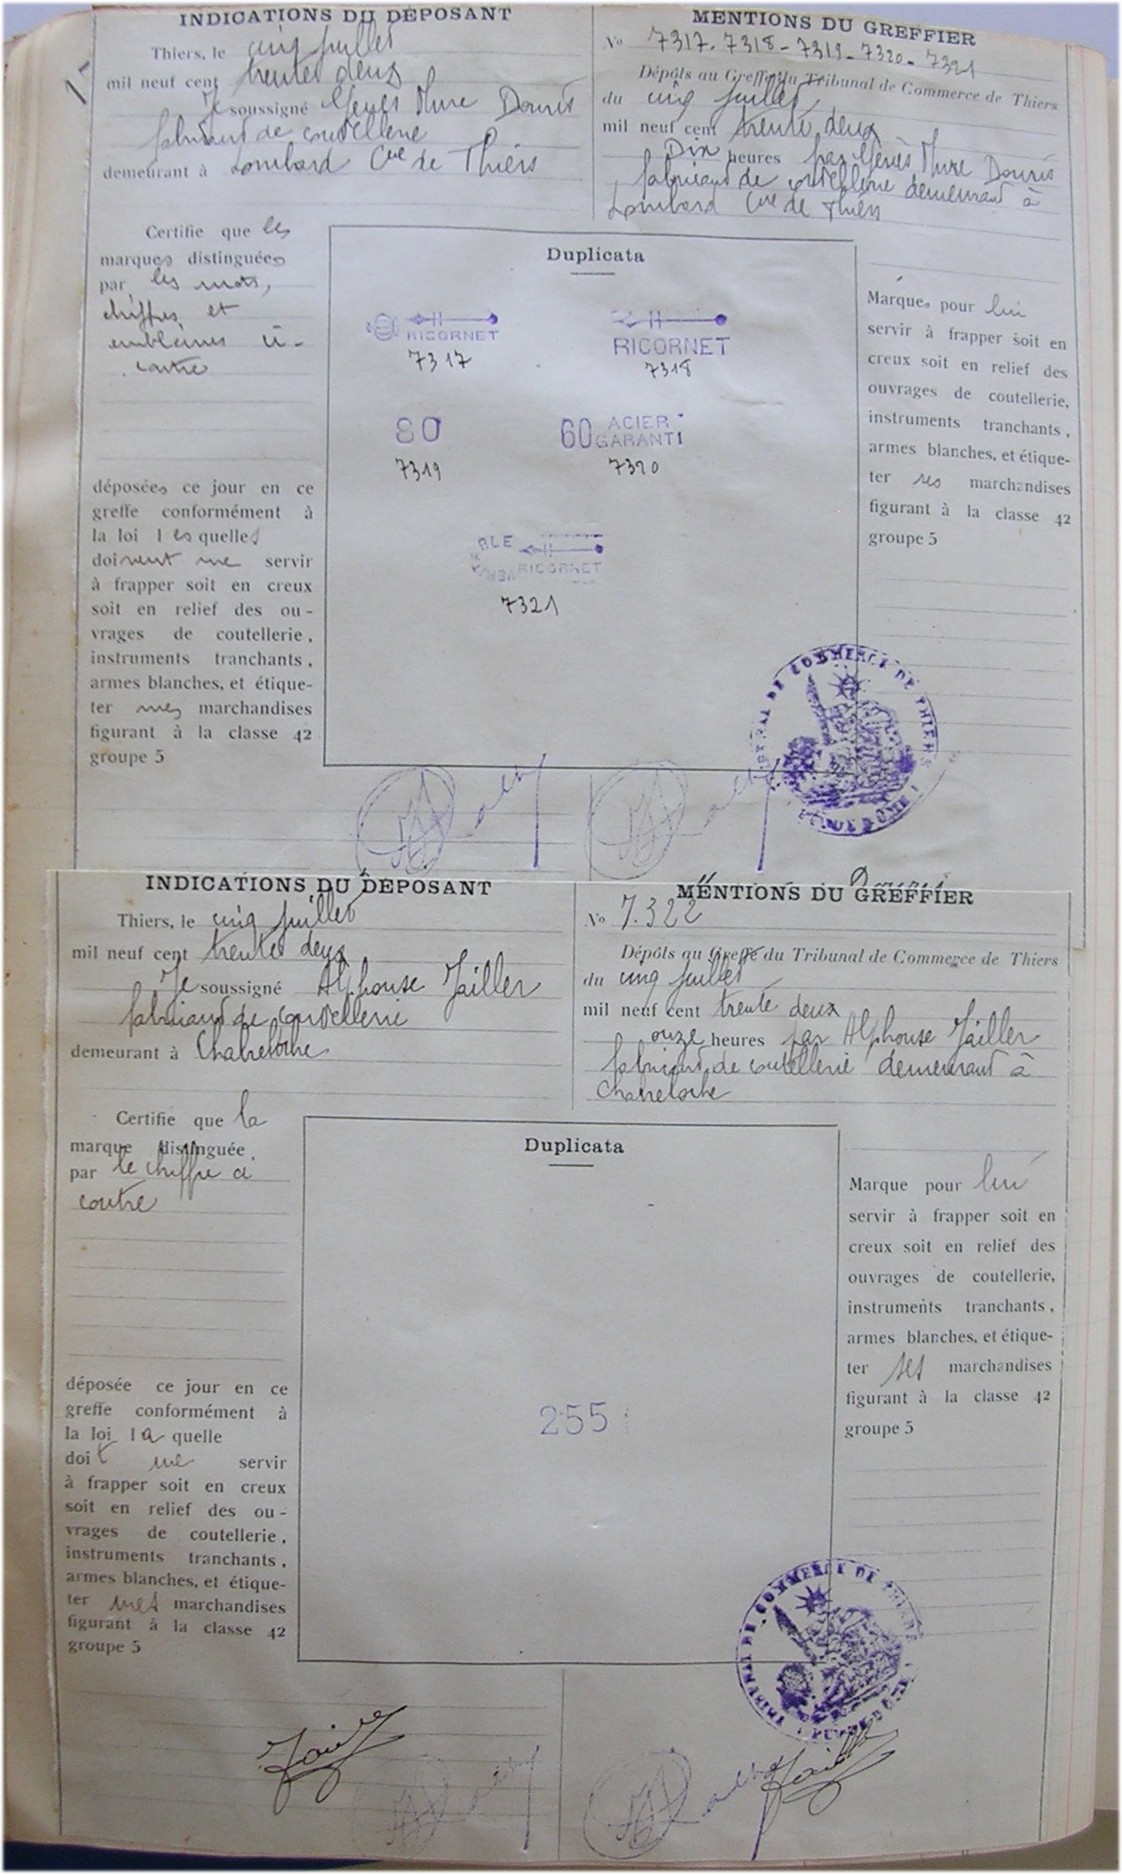 INDICATIONS DU DÉPOSANT
Thiers, le cinq juillet
mil neuf cent trente deux
Je soussigné Genès Mure Douris
fabricant de coutellerie
demeurant à Lombard Cne de Thiers
Certifie que les
marques distinguées
par les mots,
chiffres et
emblèmes ci-
contre
déposées ce jour en ce
greffe conformément à
la loi lesquelles
doivent me servir
à frapper soit en creux
soit en relief des ou-
vrages de coutellerie,
instruments tranchants,
armes blanches, et étique-
ter mes marchandises
figurant à la classe 42
groupe 5
MENTIONS DU GREFFIER
No 7317. 7318 - 7319 - 7320 - 7321
Dépôts au Greffe du Tribunal de Commerce de Thiers
du cinq juillet
mil neuf cent trente deux
Dix heures par Genès Mure Douris
fabricant de coutellerie demeurant à
Lombard Cne de Thiers
Duplicata
RICORNET
7317
RICORNET
7318
80
7319
60 ACIER
GARANTI
7320
BLE
RICORNET
7321
Marques pour lui
servir à frapper soit en
creux soit en relief des
ouvrages de coutellerie,
instruments tranchants,
armes blanches, et étique-
ter ses marchandises
figurant à la classe 42
groupe 5
TRIBUNAL DE COMMERCE DE THIERS
PUY-DE-DÔME
INDICATIONS DU DÉPOSANT
Thiers, le cinq juillet
mil neuf cent trente deux
Je soussigné Alphonse Jailler
fabricant de coutellerie
demeurant à Chabreloche
Certifie que la
marque distinguée
par le chiffre ci
contre
déposée ce jour en ce
greffe conformément à
la loi laquelle
doit me servir
à frapper soit en creux
soit en relief des ou-
vrages de coutellerie,
instruments tranchants,
armes blanches, et étique-
ter mes marchandises
figurant à la classe 42
groupe 5
MENTIONS DU GREFFIER
No 7.322
Dépôts au Greffe du Tribunal de Commerce de Thiers
du cinq juillet
mil neuf cent trente deux
onze heures par Alphonse Jailler
fabricant de coutellerie demeurant à
Chabreloche
Duplicata
255
Marque pour lui
servir à frapper soit en
creux soit en relief des
ouvrages de coutellerie,
instruments tranchants,
armes blanches, et étique-
ter ses marchandises
figurant à la classe 42
groupe 5
TRIBUNAL DE COMMERCE DE THIERS
PUY-DE-DÔME